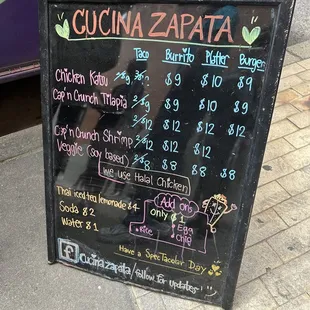 CUCINA ZAPATA
Taco Burrito Platter Burger
Chicken Katsu $9 $10 $9
Cap'n Crunch Tilapia $9 $10 $9
$12 $12 $12
Cap'n Crunch Shrimp $12 $12 $12
Veggie (soy based) $8 $8 $8
we use Halal Chicken
Thai iced tea lemonade $4
Soda $2
Water $1
Add ons
only $1
Rice
Egg
Chip
Have a SpecTacolar Day
cucinazapata/follow for updates!